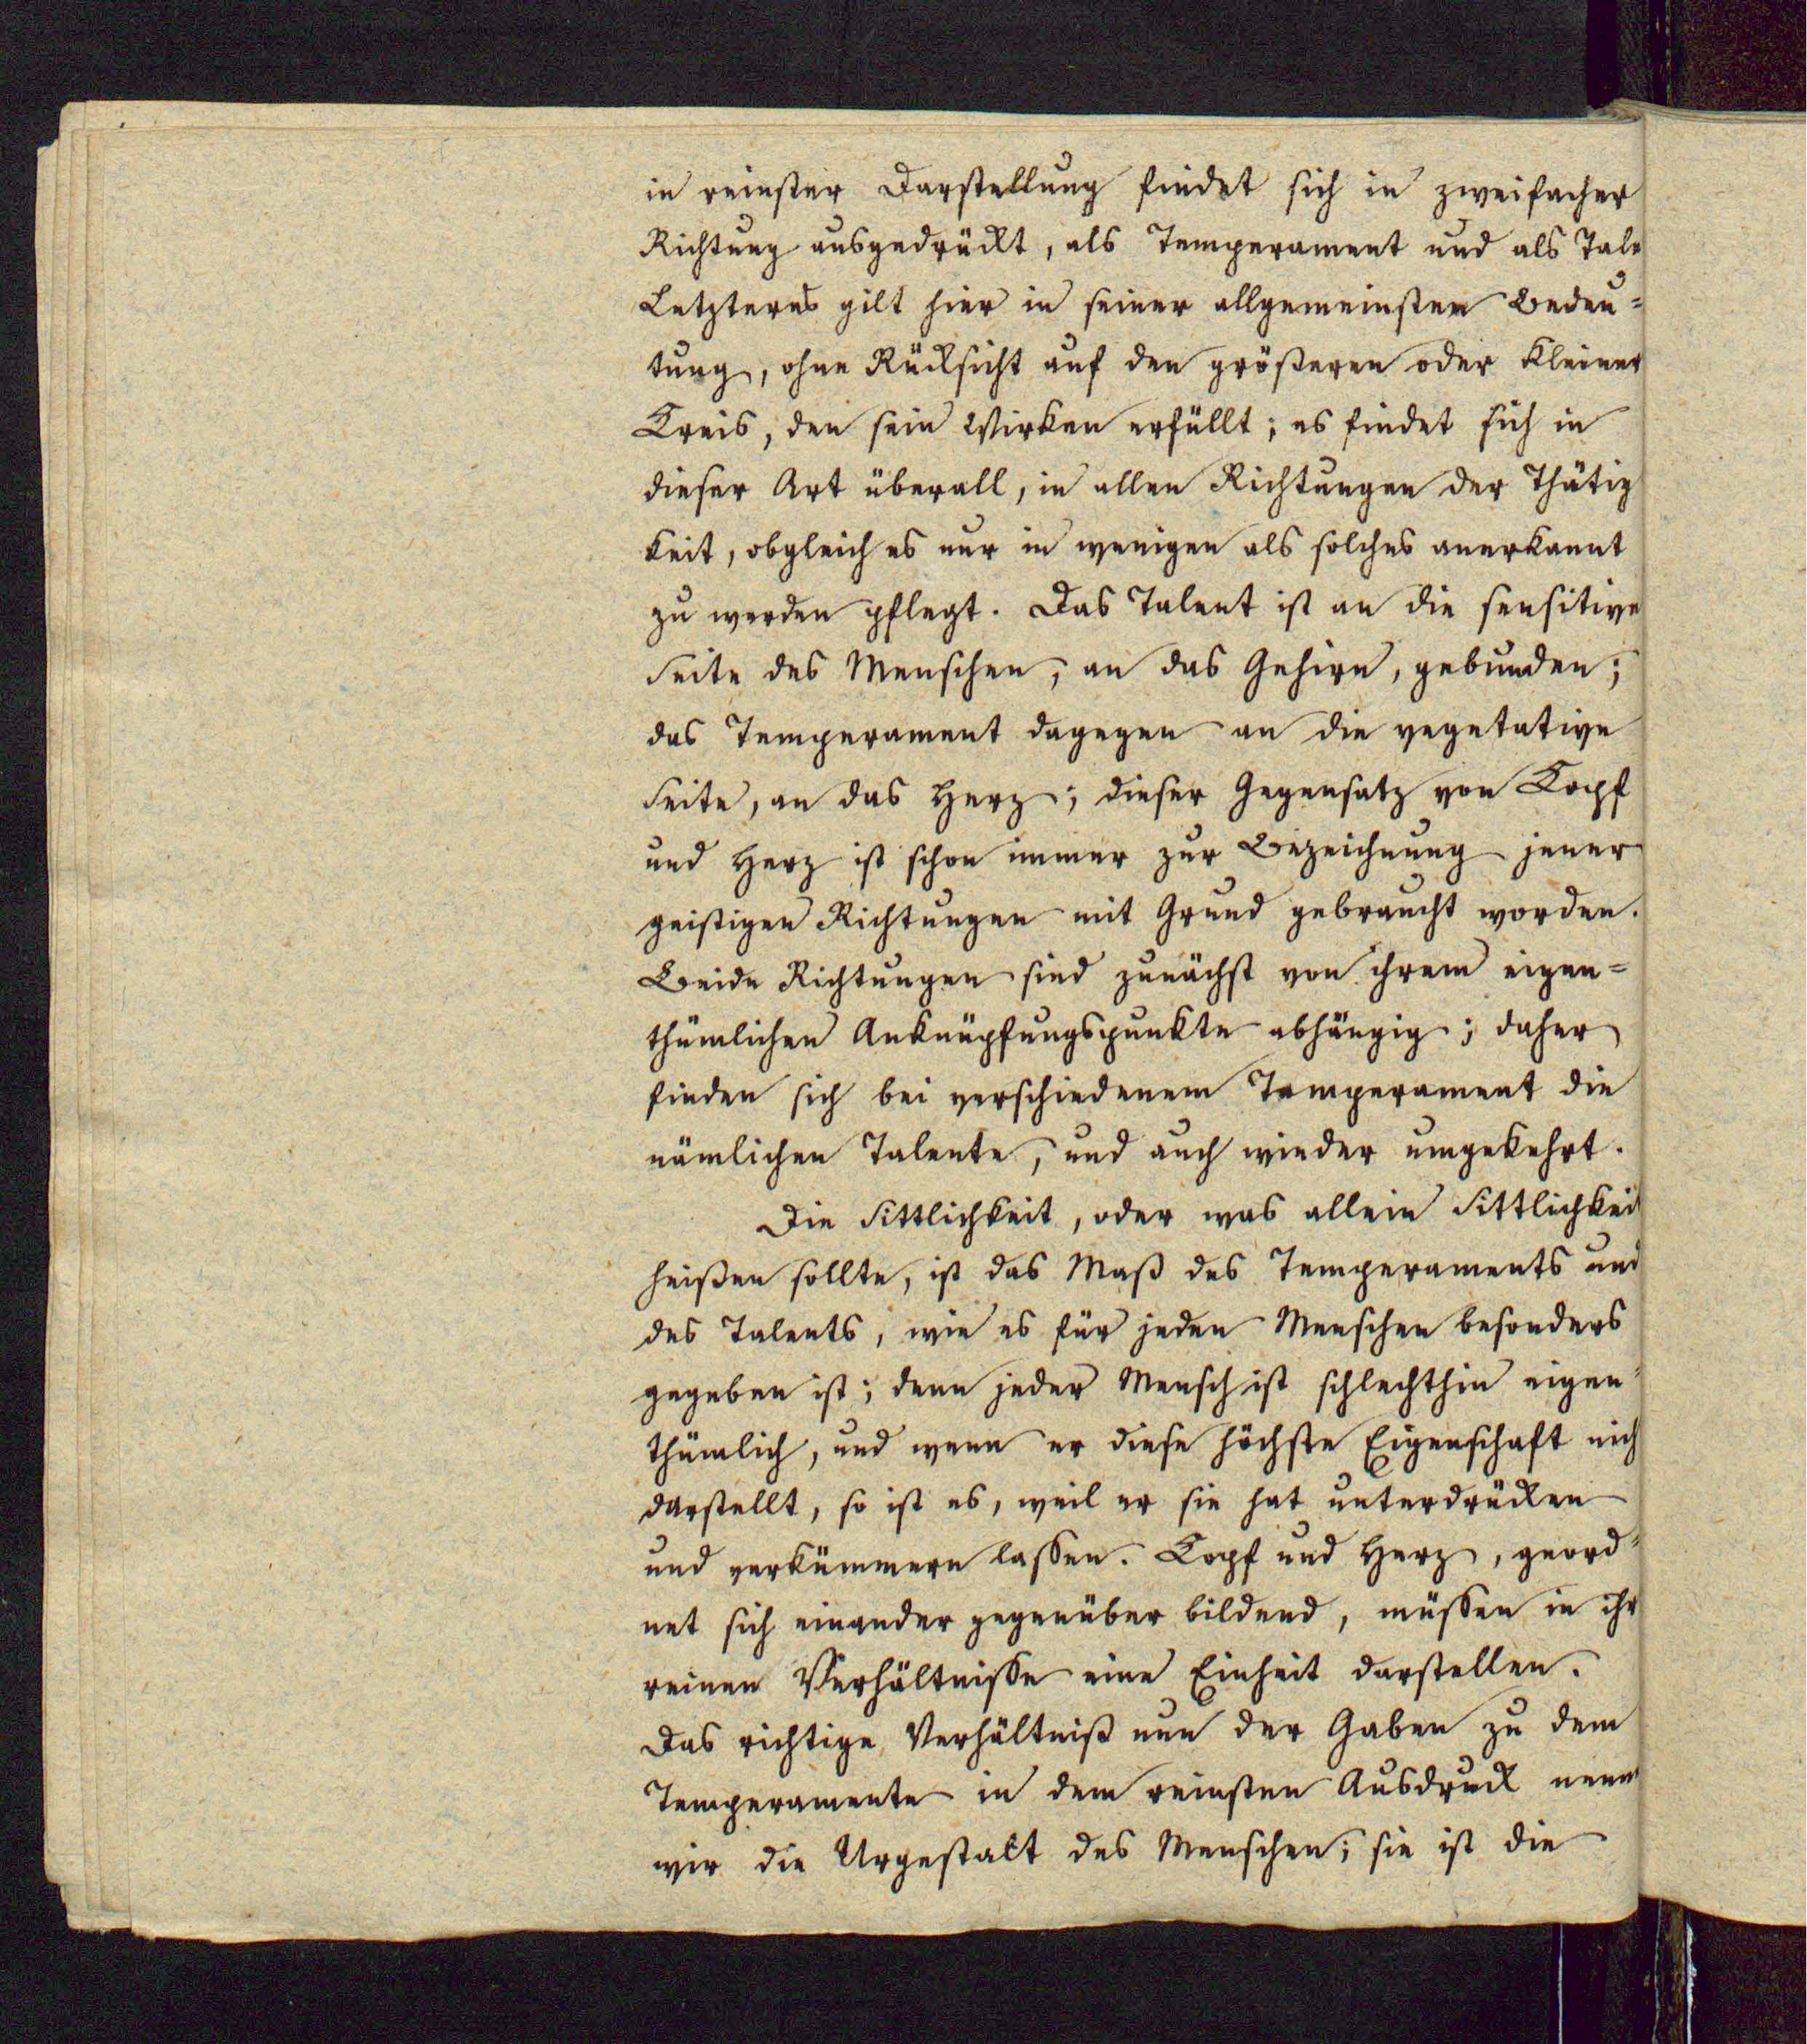 in reinster Darstellung findet sich in zweifacher
Richtung ausgedrückt, als Temperament und als Tale
Letzteres gilt hier in seiner allgemeinsten Bedeu=
tung, ohne Rücksicht auf den größeren oder kleiner
Kreis, den sein Wirken erfüllt; es findet sich in
dieser Art überall, in allen Richtungen der Thätig
keit, obgleich es nur in wenigen als solches anerkannt
zu werden pflegt. Das Talent ist an die sensitive
Seite des Menschen, an das Gehirn, gebunden;
das Temperament dagegen an die vegetative
Seite, an das Herz; dieser Gegensatz von Kopf
und Herz ist schon immer zur Bezeichnung jener
geistigen Richtungen mit Grund gebraucht worden.
Beide Richtungen sind zunächst von ihrem eigen=
thümlichen Anknüpfungspunkte abhängig; daher
finden sich bei verschiedenem Temperament die
nämlichen Talente, und auch wieder umgekehrt.
Die Sittlichkeit, oder was allein Sittlichkeit
heißen sollte, ist das Maß des Temperaments und
des Talents, wie es für jeden Menschen besonders
gegeben ist; denn jeder Mensch ist schlechthin eigen=
thümlich, und wenn er diese höchste Eigenschaft nich
darstellt, so ist es, weil er sie hat unterdrücken
und verkümmern lassen. Kopf und Herz, geord=
net sich einander gegenüber bildend, müssen in ihr
reinen Verhältnisse eine Einheit darstellen.
Das richtige Verhältniß nun der Gaben zu dem
Temperamente in dem reinsten Ausdruck nenn
wir die Urgestalt des Menschen; sie ist die